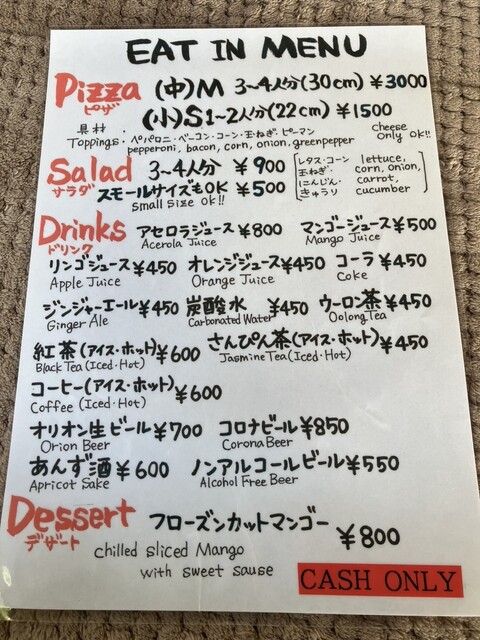 EAT IN MENU
Pizza (中)M 3~4人分(30cm) ¥3000
ピザ (小)S 1~2人分(22cm) ¥1500
具材 ・ペパロニ・ベーコン・コーン・玉ねぎ・ピーマン cheese
Toppings・pepperoni, bacon, corn, onion, greenpepper only OK!!
Salad 3~4人分 ¥900 レタス・コーン lettuce,
サラダ スモールサイズもOK ¥500 玉ねぎ・ corn, onion,
small size ok!! にんじん・ carrot,
きゅうり cucumber
Drinks アセロラジュース ¥800 マンゴージュース ¥500
ドリンク Acerola Juice Mango Juice
リンゴジュース ¥450 オレンジジュース ¥450 コーラ ¥450
Apple Juice Orange Juice Coke
ジンジャーエール ¥450 炭酸水 ¥450 ウーロン茶 ¥450
Ginger Ale Carbonated Water Oolong Tea
紅茶(アイス・ホット) ¥600 さんぴん茶(アイス・ホット) ¥450
Black Tea (Iced・Hot) Jasmine Tea (Iced・Hot)
コーヒー(アイス・ホット) ¥600
Coffee (Iced・Hot)
オリオン生ビール ¥700 コロナビール ¥850
Orion Beer Corona Beer
あんず酒 ¥600 ノンアルコールビール ¥550
Apricot Sake Alcohol Free Beer
Dessert フローズンカットマンゴー ¥800
デザート chilled sliced Mango
with sweet sause
CASH ONLY